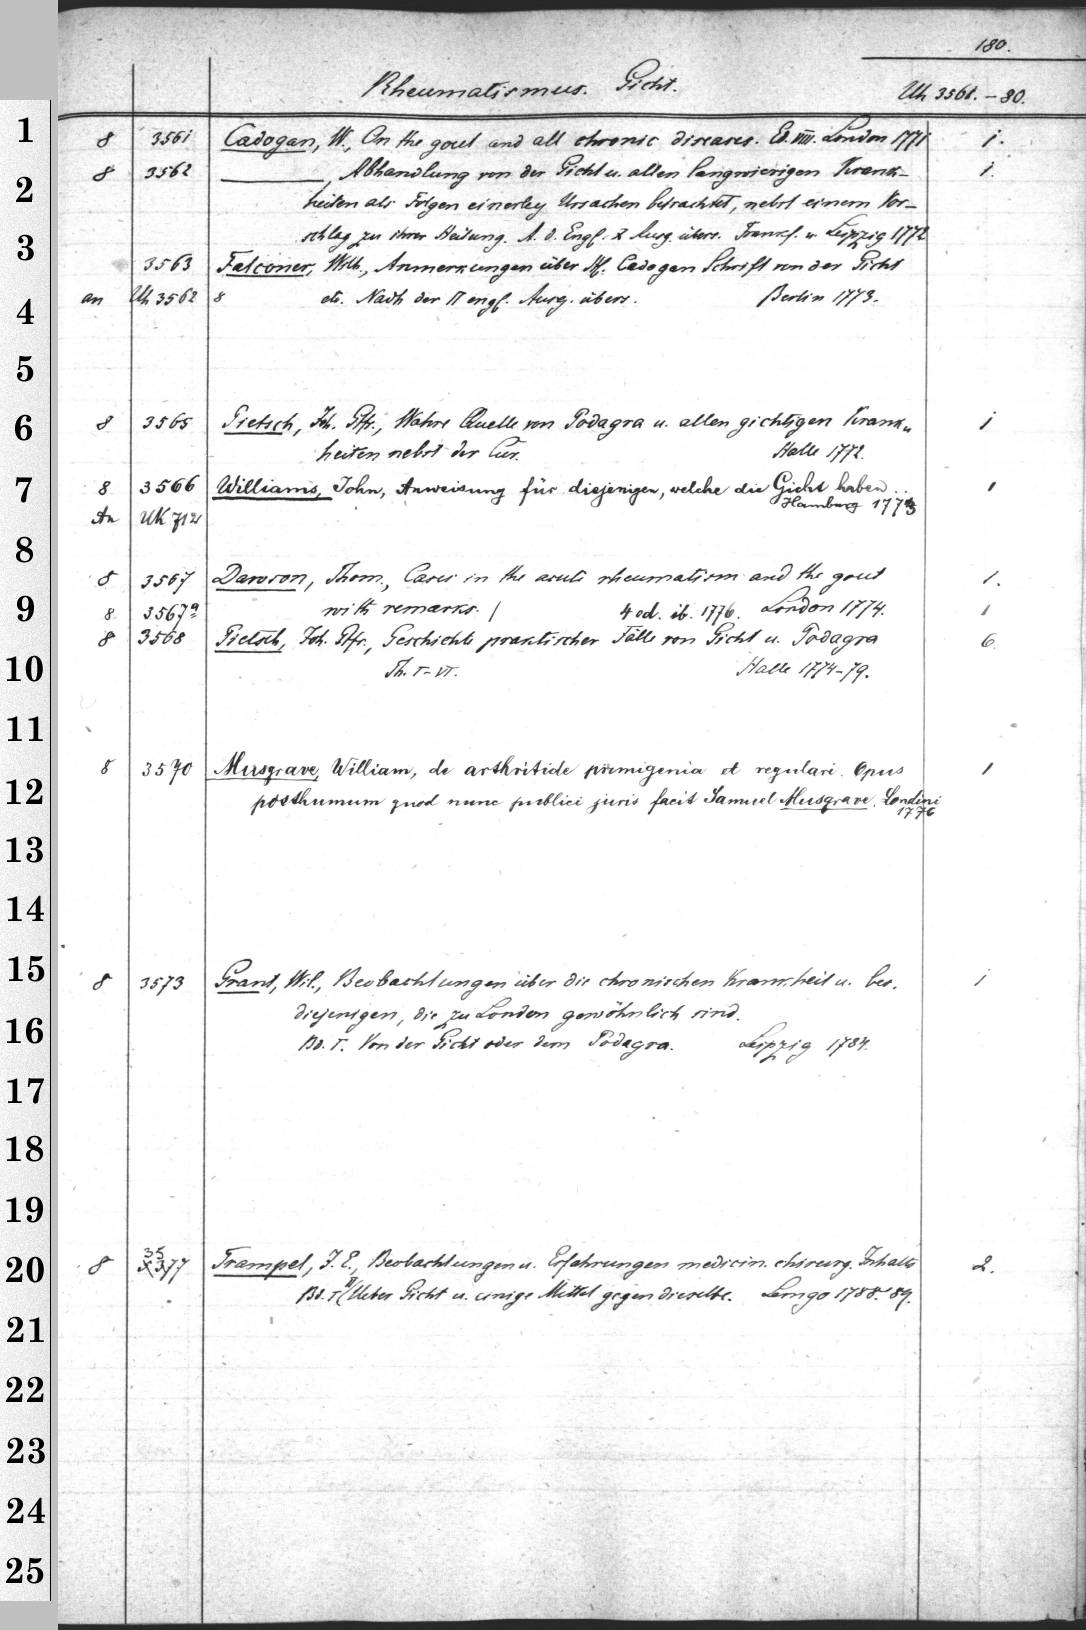 180.
Rheumatismus. Gicht. Uh 3561. – 80.
1
8 3561 Cadogan, W., On the gout and all chronic diseases. Ed. VIII. London 1771 1.
2
8 3562 ———, Abhandlung von der Gicht u. allen langwierigen Krank-
heiten als Folgen einerley Ursachen betrachtet, nebst einem Vor-
3
schlag zu ihrer Heilung. A. d. Engl. 2 Ausg. übers. Frankf. u. Leipzig 1772
3563 Falconer, Wilh., Anmerkungen über Hf. Cadogan Schrift von der Gicht
an Uh 3562 8 etc. Nach der II engl. Ausg. übers. Berlin 1773.
4
5
6
8 3565 Pietsch, Joh. Gfr., Wahre Quelle von Podagra u. allen gichtigen Krank-
heiten nebst der Cur. Halle 1772. 1
7
8 3566 Williams, John, Anweisung für diejenigen, welche die Gicht haben .. 1
An UK 712 Hamburg 1773
8
8 3567 Dawson, Thom., Cases in the acute rheumatism and the gout 1.
9
8 3567a with remarks. / 4 ed. ib. 1776. London 1774. 1
8 3568 Pietsch, Joh. Gfr., Geschichte praktischer Fälle von Gicht u. Podagra 6.
10
Th. I–VI. Halle 1774–79.
11
12
8 3570 Musgrave, William, de arthritide primigenia et regulari. Opus 1
posthumum quod nunc publici juris facit Samuel Musgrave. Londini
1776
13
14
15
8 3573 Grant, Wil., Beobachtungen über die chronischen Krankheit u. bes. 1
diejenigen, die zu London gewöhnlich sind.
16
Bd. I. Von der Gicht oder dem Podagra. Leipzig 1784.
17
18
19
20
8 3577 Trampel, J. E., Beobachtungen u. Erfahrungen medicin. chirurg. Inhalts 2.
Bd. I/II Ueber Gicht u. einige Mittel gegen dieselbe. Lemgo 1788. 89.
21
22
23
24
25